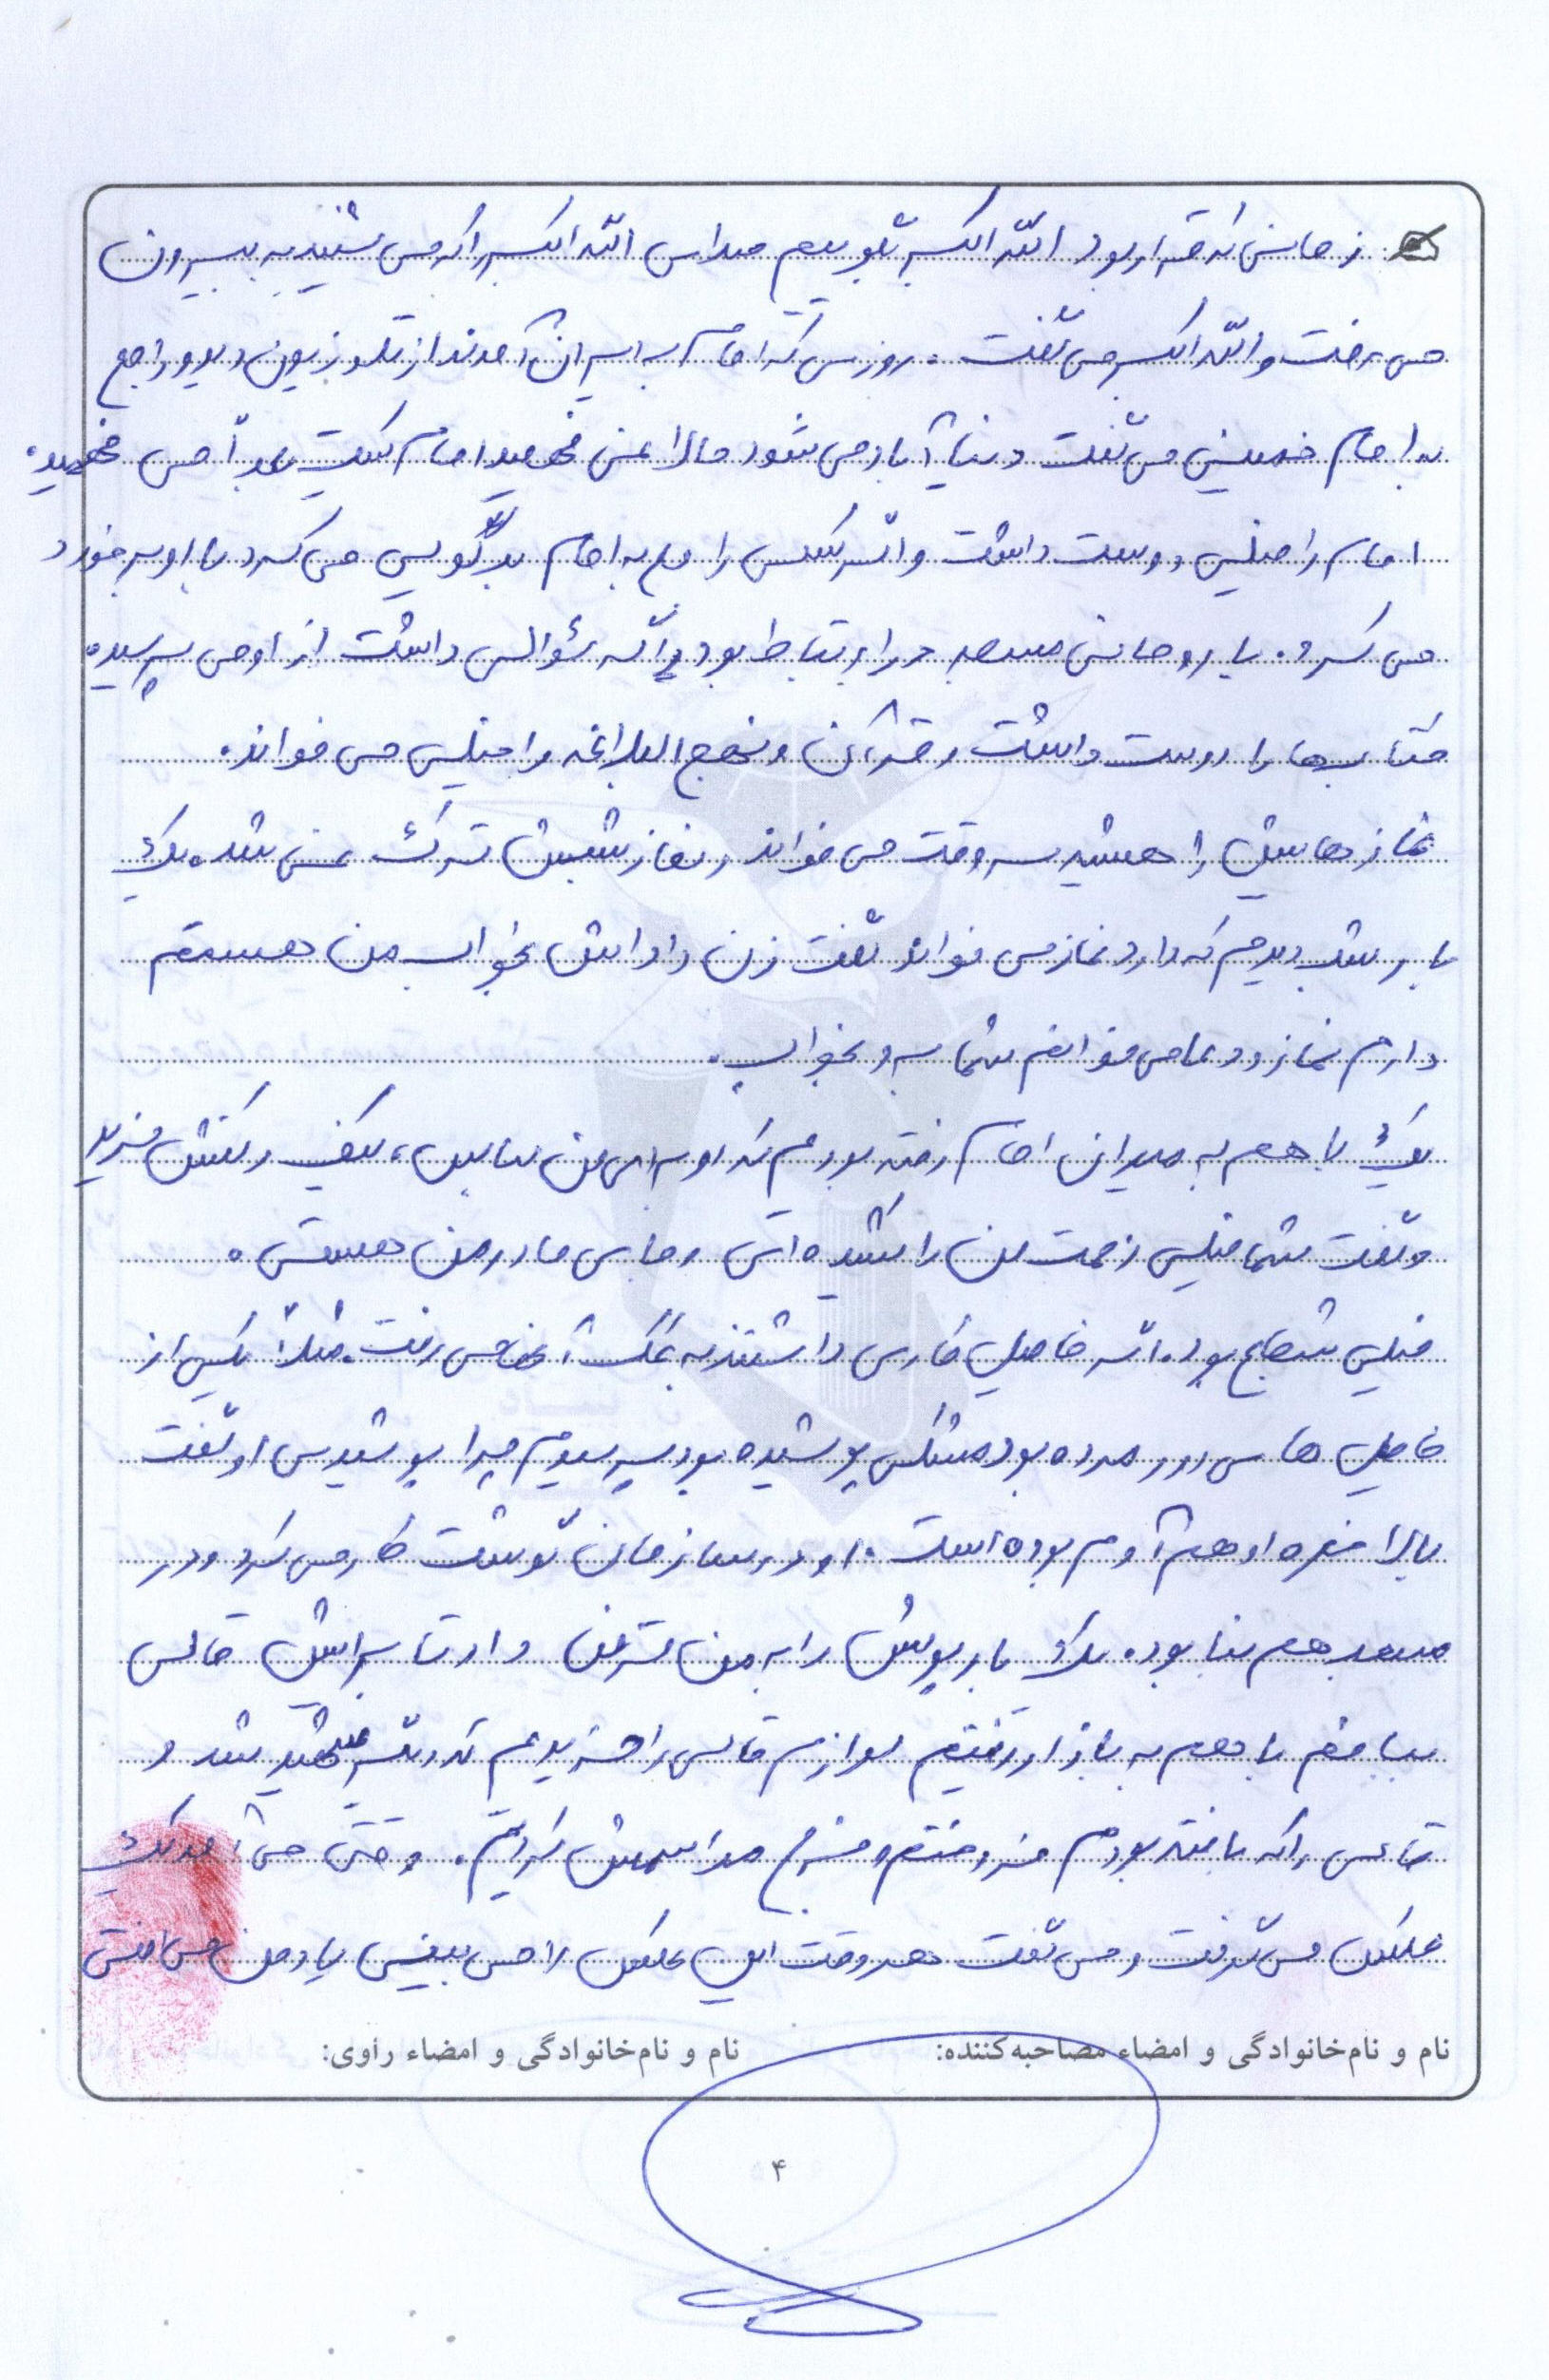 زمانی که قرار بود الله اکبر بگوییم صدای الله اکبر را که می شنید به بیرون
می رفت و الله اکبر می گفت. روزی که امام به ایران آمدند از تلوزیون دید و راجع
به امام خمینی می گفت دنیا آباد می شود حالا نمی فهمید امام کیست بعداً می فهمید.
امام را خیلی دوست داشت و اگر کسی راجع به امام بدگویی می کرد با او برخورد
می کرد. با روحانی مسجد در ارتباط بود و اگر سؤالی داشت از او می پرسید.
کتاب ها را دوست داشت و قرآن و نهج البلاغه را خیلی می خواند.
نماز هایش را همیشه سر وقت می خواند و نماز شبش ترک نمی شد. یک
بار شب دیدم که دارد نماز می خواند گفت زن داداش بخواب من هستم
دارم نماز و دعا می خوانم شما برو بخواب.
یک با هم به میدان امام رفته بودیم که او برای من لباس، کیف و کفش خرید
و گفت شما خیلی زحمت من را کشیده ای و جای مادر من هستی.
خیلی شجاع بود. اگر فامیل کاری داشتند به کمک آنها می رفت. مثلاً یکی از
فامیل های دور مرده بود مشکی پوشیده بود پرسیدم چرا پوشیدی او گفت
بالاخره او هم آدم بوده است. او در سازمان گوشت کار می کرد و در
مسجد هم بنا بود. یک بار پولش را به من قرض داد تا برایش قالی
ببافم با هم به بازار رفتیم لوازم قالی را خریدیم که دیگر شهید شد و
قالی را که بافته بودم فروختم و خرج مراسمش کردیم. وقتی می آمد یک
عکس می گرفت و می گفت هر وقت این عکس را می بینی یاد من می افتی
نام و نام‌خانوادگی و امضاء مصاحبه‌کننده: نام و نام‌خانوادگی و امضاء راوی:
۴